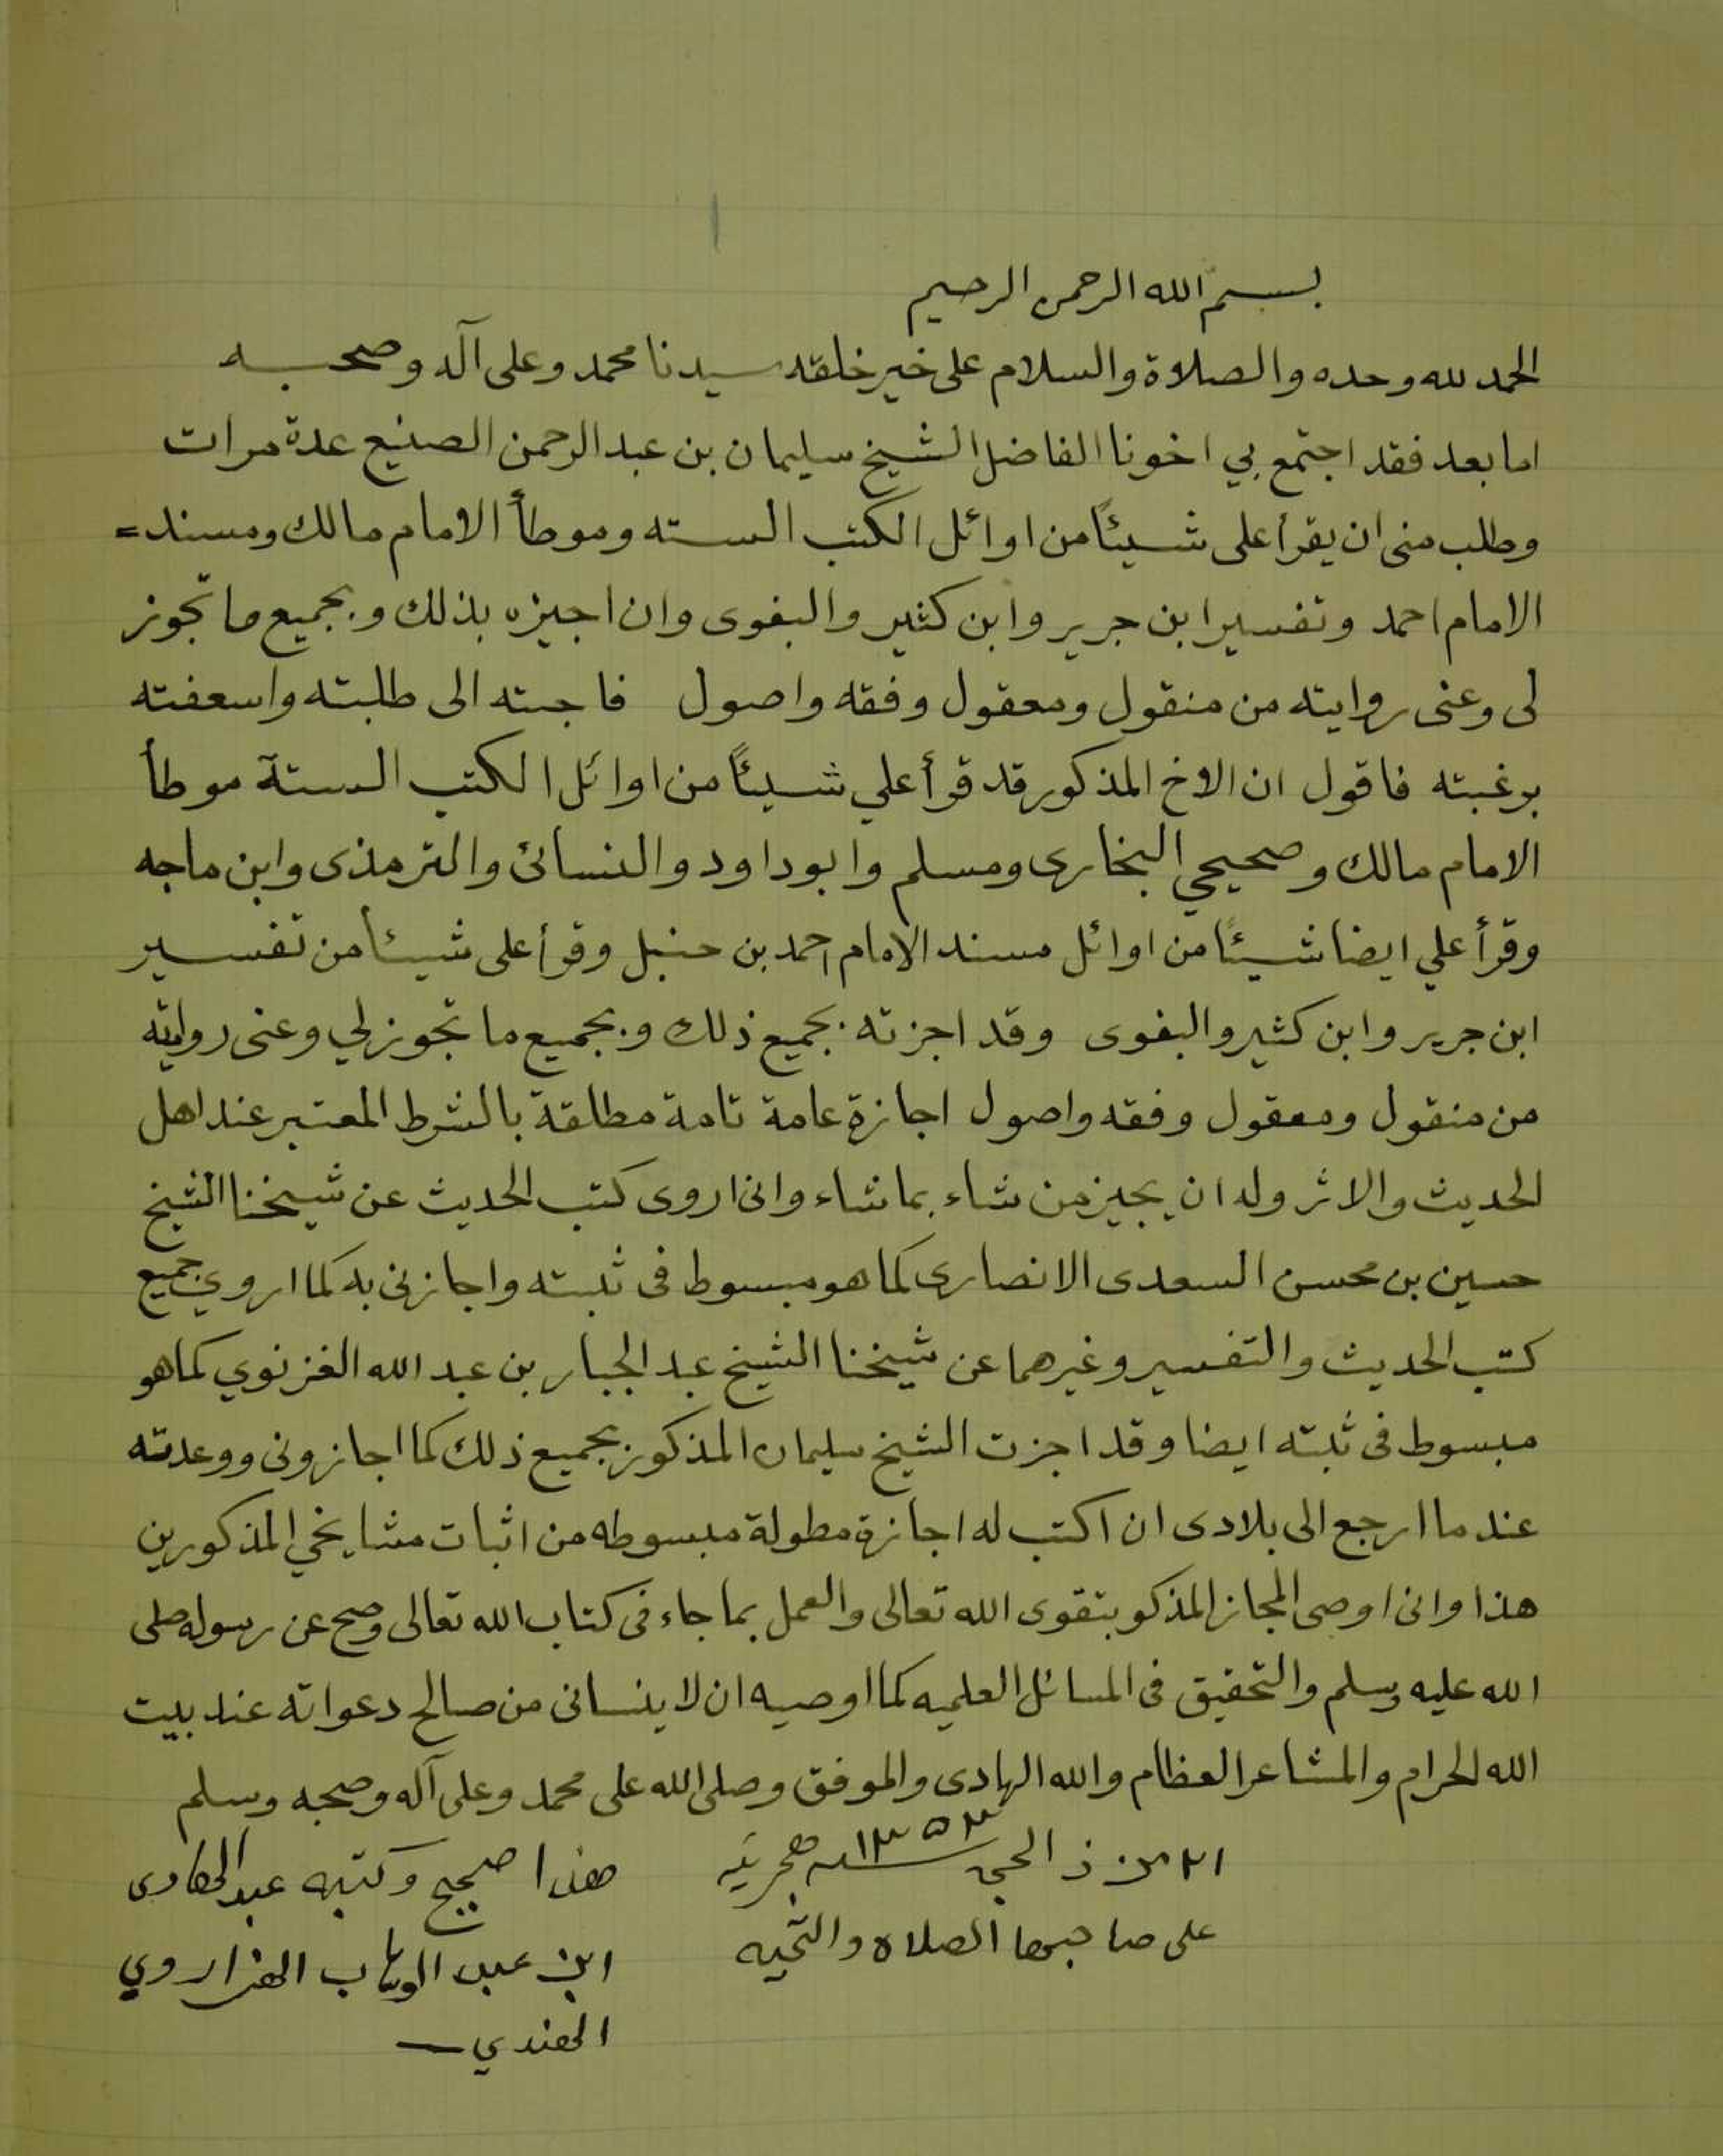 بسم الله الرحمن الرحيم
الحمد لله وحده والصلاة والسلام على خير خلقه سيدنا محمد وعلى آله وصحبه
اما بعد فقد اجتمع بي اخونا الفاضل الشيخ سليمان بن عبد الرحمن الصنيع عدة مرات
وطلب منى ان يقرأ على شيئاً من اوائل الكتب الستة وموطأ الامام مالك ومسند =
الامام احمد وتفسير ابن جرير وابن كثير والبغوى وان اجيزه بذلك وبجميع ما تجوز
لى وعنى روايته من منقول ومعقول وفقه واصول فاجبته الى طلبته واسعفته
برغبته فاقول ان الاخ المذكور قد قرأ علي شيئاً من اوائل الكتب الستة موطأ
الامام مالك وصحيحي البخارى ومسلم وابو داود والنسائ والترمذى وابن ماجه
وقرأ علي ايضا شيئاً من اوائل مسند الامام احمد بن حنبل وقرأ على شيئا من تفسير
ابن جرير وابن كثير والبغوى وقد اجزته بجميع ذلك وبجميع ما تجوز لي وعنى روايته
من منقول ومعقول وفقه واصول اجازة عامة تامة مطلقة بالشرط المعتبر عند اهل
الحديث والاثر وله ان يجيز من شاء بما شاء وانى اروى كتب الحديث عن شيخنا الشيخ
حسين بن محسن السعدى الانصارى كما هو مبسوط فى ثبته واجازنى به كما اروي جميع
كتب الحديث والتفسير وغيرهما عن شيخنا الشيخ عبد الجبار بن عبد الله الغزنوي كما هو
مبسوط فى ثبته ايضا وقد اجزت الشيخ سليمان المذكور بجميع ذلك كما اجازونى ووعدته
عند ما ارجع الى بلادى ان اكتب له اجازة مطولة مبسوطه من اثبات مشايخي المذكورين
هذا وانى اوصى المجاز المذكو بتقوى الله تعالى والعمل بما جاء فى كتاب الله تعالى وصح عن رسوله صلى
الله عليه وسلم والتحقيق فى المسائل العلميه كما اوصيه ان لا ينسانى من صالح دعواته عند بيت
الله الحرام والمشاعر العظام والله الهادى والموفق وصلى الله على محمد وعلى آله وصحبه وسلم
من ذ الحج ١٣٥٣ هجريه
على صاحبها الصلاة والتحيه
هذا صحيح وكتبه عبد الهادى
ابن عبد الوهاب الهزاروي
الهندي